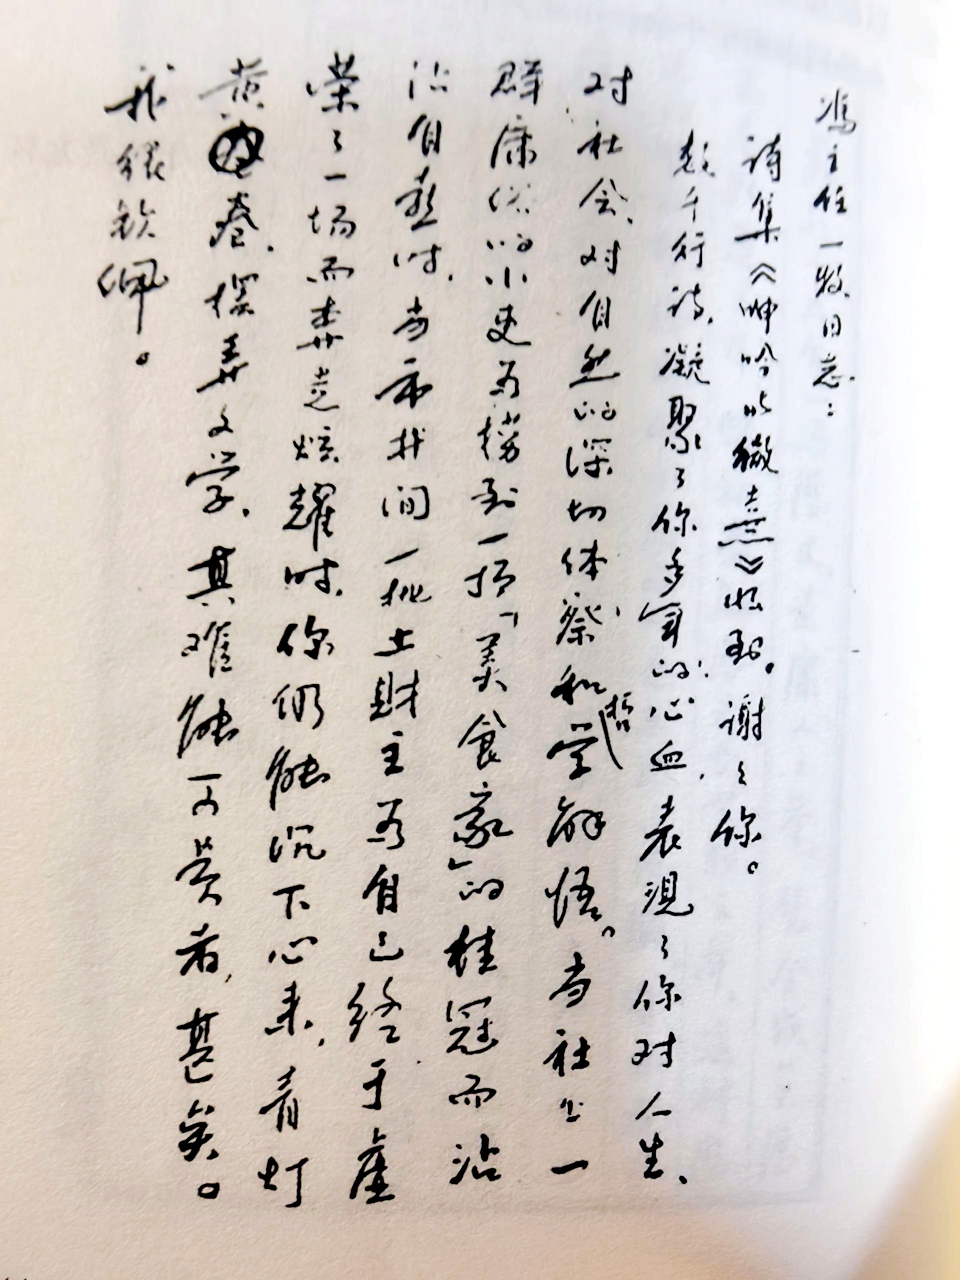 冯主任一牧同志：
诗集《呻吟比缄熹》收到。谢谢你。
数千行诗，凝聚了你多年的心血，表现了你对人生、
对社会、对自然的深切体察和哲学解悟。当社会上一
群庸俗的小吏为捞到一顶“美食家”的桂冠而沾
沾自喜时，当市井间一批土财主为自己终于虚
荣了一场而弄走炫耀时，你仍能沉下心来，青灯
黄卷，摆弄文学，其难能可贵者，甚矣。
我很钦佩。